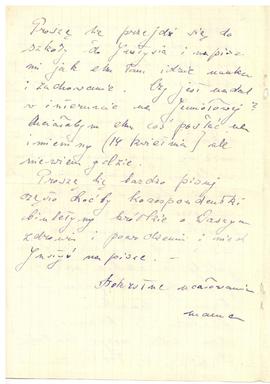 Proszę Cię przejdź się do
szkoły do Justysia i napisz
mi jak mu tam idzie nauka
i zachowanie. Czy jest nadal
w internacie na
Chciałabym mu coś posłać na
imieniny (14 kwietnia) ale
nie wiem gdzie.
Proszę Cię bardzo pisuj
często choćby korespondentki
biuletyny krótkie o Waszym
zdrowiu i powodzeniu i niech
Justyś napisze. –
Stokrotne ucałowania
mama